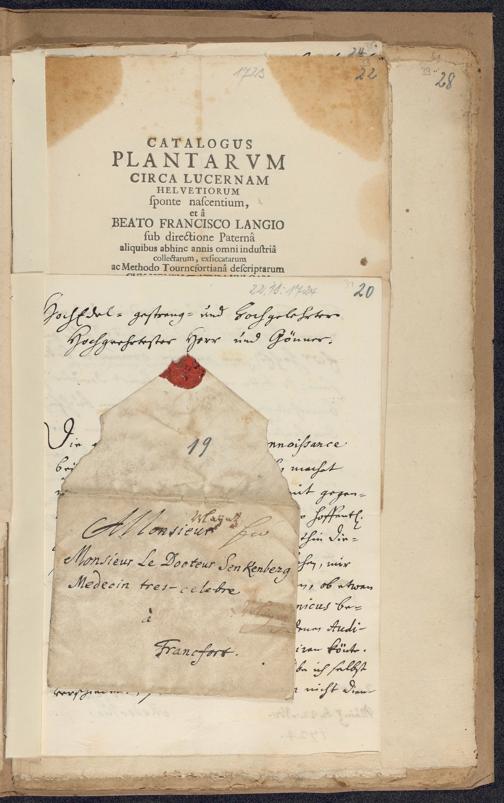 24
22
1723
28
CATALOGUS
PLANTARVM
CIRCA LUCERNAM
HELVETIORUM
sponte nascentium,
et â
BEATO FRANCISCO LANGIO
sub directione Paternâ
aliquibus abhinc annis omni industriâ
collectarum, exsiccatarum
ac Methodo Tournefortianâ descriptarum
1724
20
HochEdel- gestreng- und Hochgelehrter
Hochgeehrtester Herr und Gönner.
Die
nnoissance
machet
gegen-
hoffentl:
thin die-
hen, mir
ob etwan
nicus be-
denen Audi-
könte.
be ich selbst
nicht dien-
19
A Monsieur
Monsieur Le Docteur Senkenberg
Medecin tres-celebre
à
Francfort.